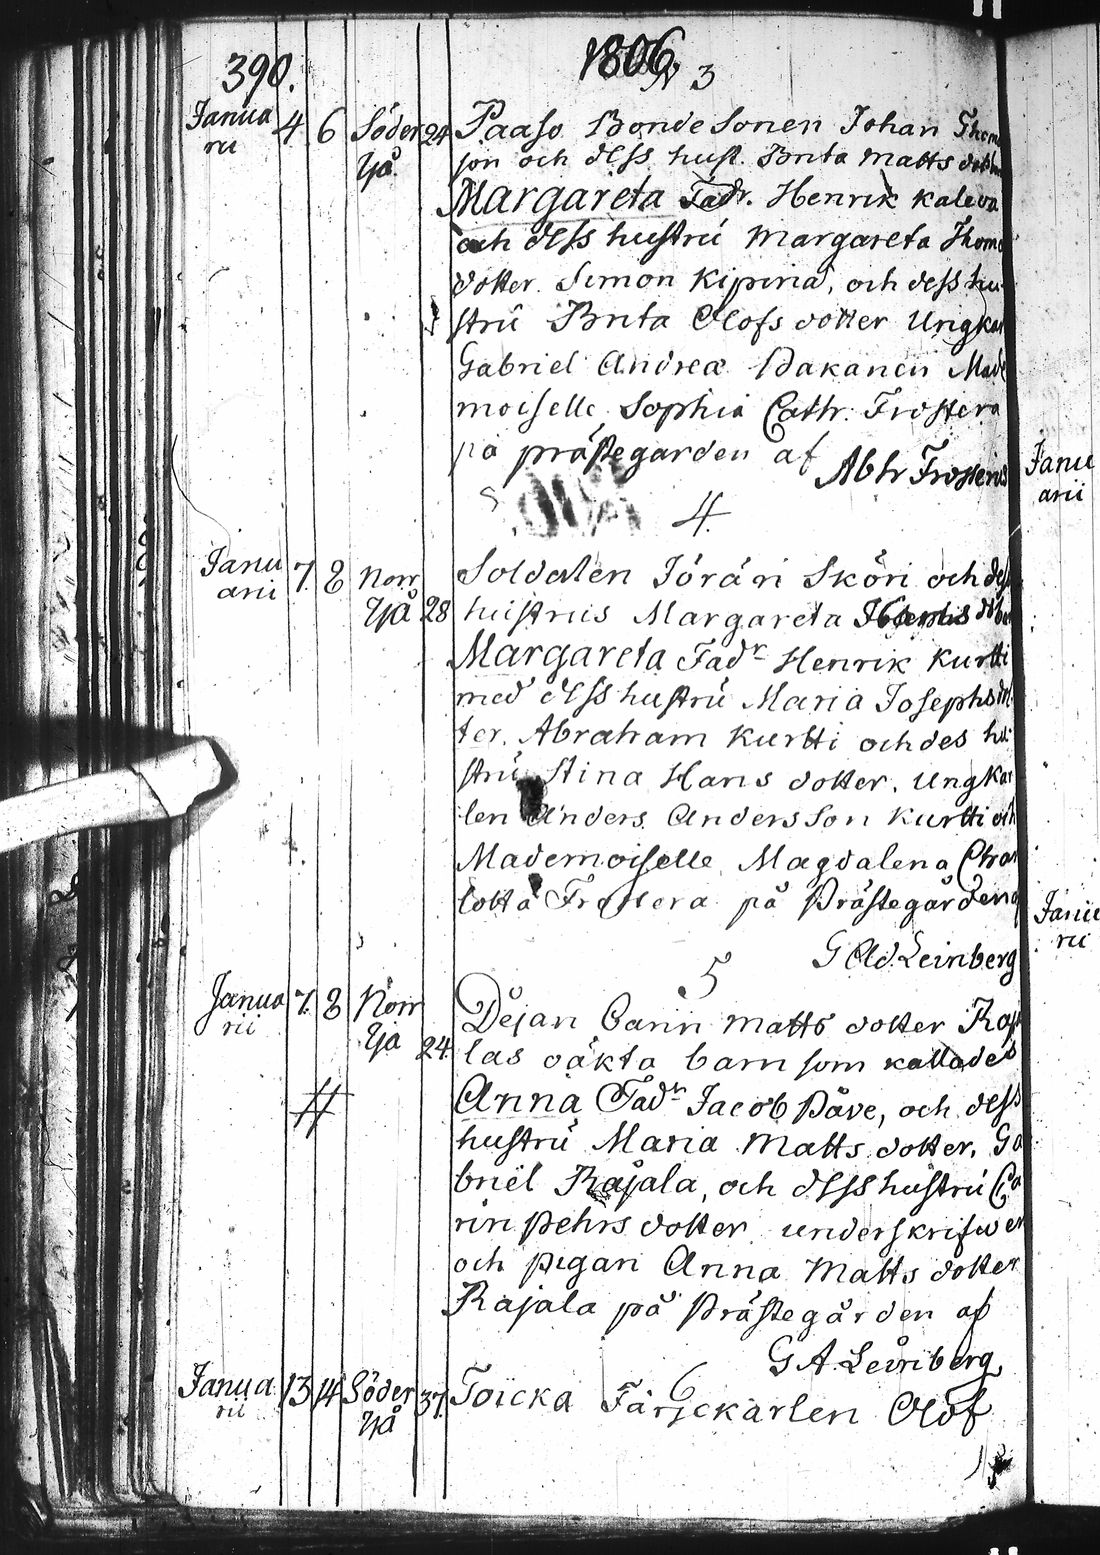 390.
1806.
N 3
Janua 4 6 Söder 24 Paaso Bonde Sonen Johan Thom
rii Yjå son och dess hust. Brita Matts dotter
Margareta Fadr. Henrik Kaleva
och dess hustru Margareta Thom
dotter. Simon Kipinä, och dess hu
stru Brita Olofs dotter Ungkar
Gabriel Andreæ Pakanen Made
moiselle Sophia Cathr: Frostera
på prästegården af Abr Frosterus
4.
Janu 7. 8 Norr Soldaten Jöran Sköri och dess
arii Yjå 28 hustrus Margareta
Margareta Fadr Henrik Kurtti
med dess hustru Maria Josephs dot
ter. Abraham Kurtti och des hu
stru Stina Hans dotter. Ungkar
len Anders Andersson Kurtti och
Mademoiselle Magdalena Char
lotta Frostera på Prästegården af
G Ad. Leinberg
5
Janua 7. 8 Norr Dejan Carin Matts dotter
rii Yjå 24 las oäkta barn som kallades
Anna Fadr Jacob Päve, och dess
hustru Maria Matts dotter. Ga
briel Rajala, och dess hustru Ca
rin Pehrs dotter underskrifwen
och pigan Anna Matts dotter
Rajala på Prästegården af
G A Leinberg
6
Janua 13 14 Söder 37. Toicka Färjekarlen Olof
rii Yjå
Janu
arii
Janu
rii